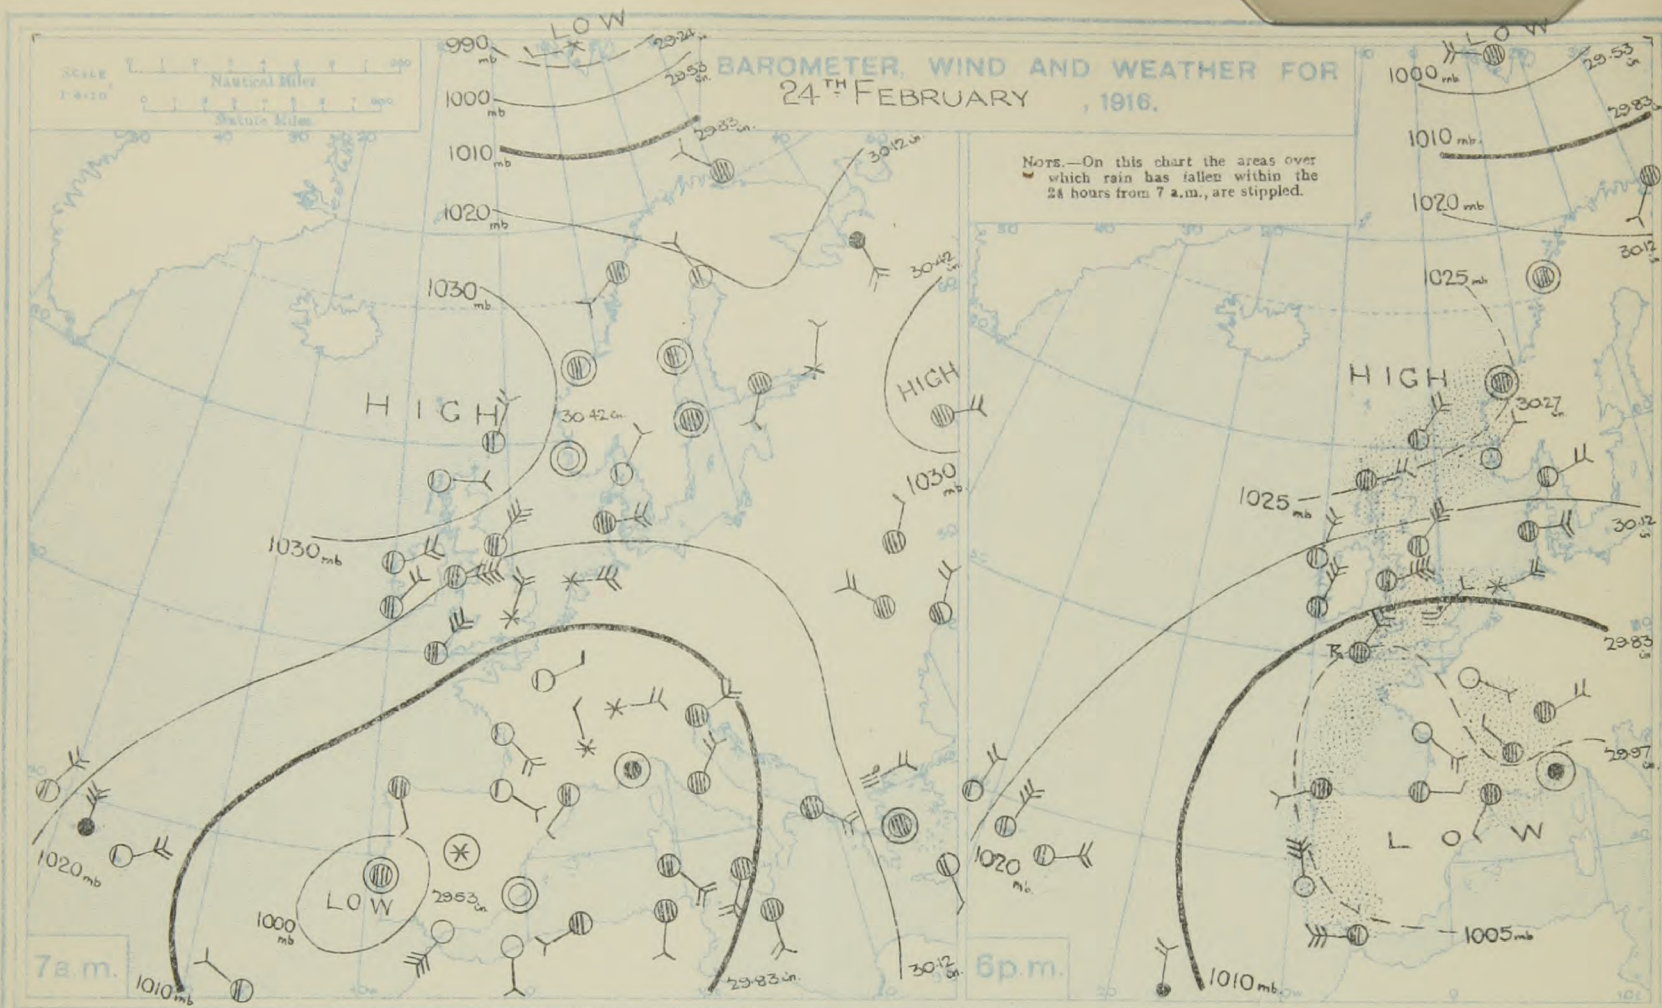 BAROMETER, WIND AND WEATHER FOR
24TH FEBRUARY, 1916.
SCALE
Nautical Miles
Statute Miles
NOTE.—On this chart the areas over
which rain has fallen within the
24 hours from 7 a.m., are stippled.
LOW
990 mb
29.24 in
1000 mb
29.53 in
1010 mb
29.83 in.
1020 mb
30.12 in
1030 mb
30.42 in.
HIGH
30.42 in.
HIGH
1030 mb.
1030 mb
1020 mb
LOW
29.53 in
1000 mb
1010 mb
29.83 in.
30.12 in.
7 a.m.
LOW
1000 mb
29.53 in
1010 mb.
29.83 in
1020 mb
30.12 in
1025 mb
HIGH
30.27 in
1025 mb
30.12 in
29.83 in
R
L
LOW
1020 mb.
1005 mb
1010 mb.
6 p.m.